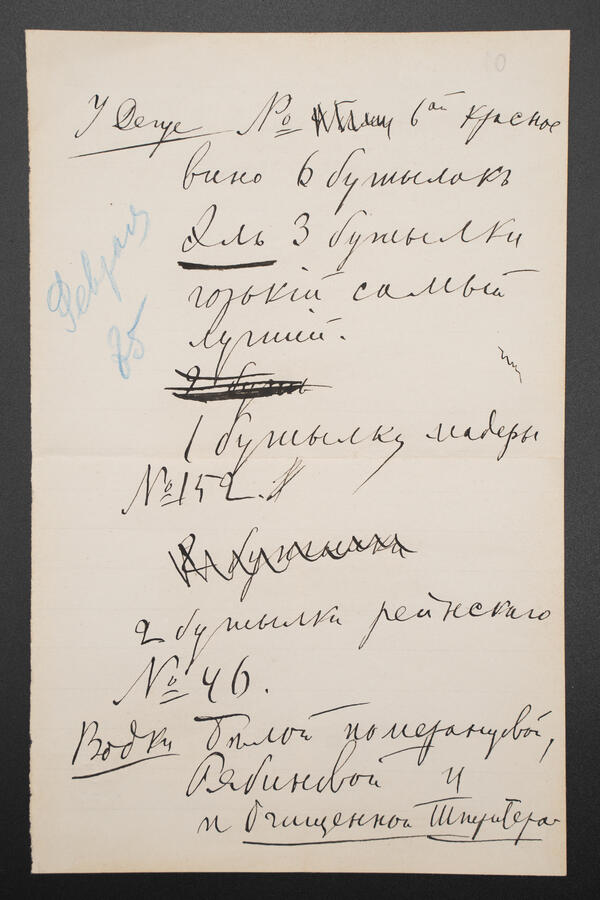 У Депре № 6ой красное
вино 6 бутылокъ
Эль 3 бутылки
горькiй самый
лучшiй.
1 бутылку мадеры
№ 152.
2 бутылки
2 бутылки рейнскаго
№ 46.
Водки Бѣлой померанцовой,
Рябиновой и
и очищенной Штритера
Февраля
25
10